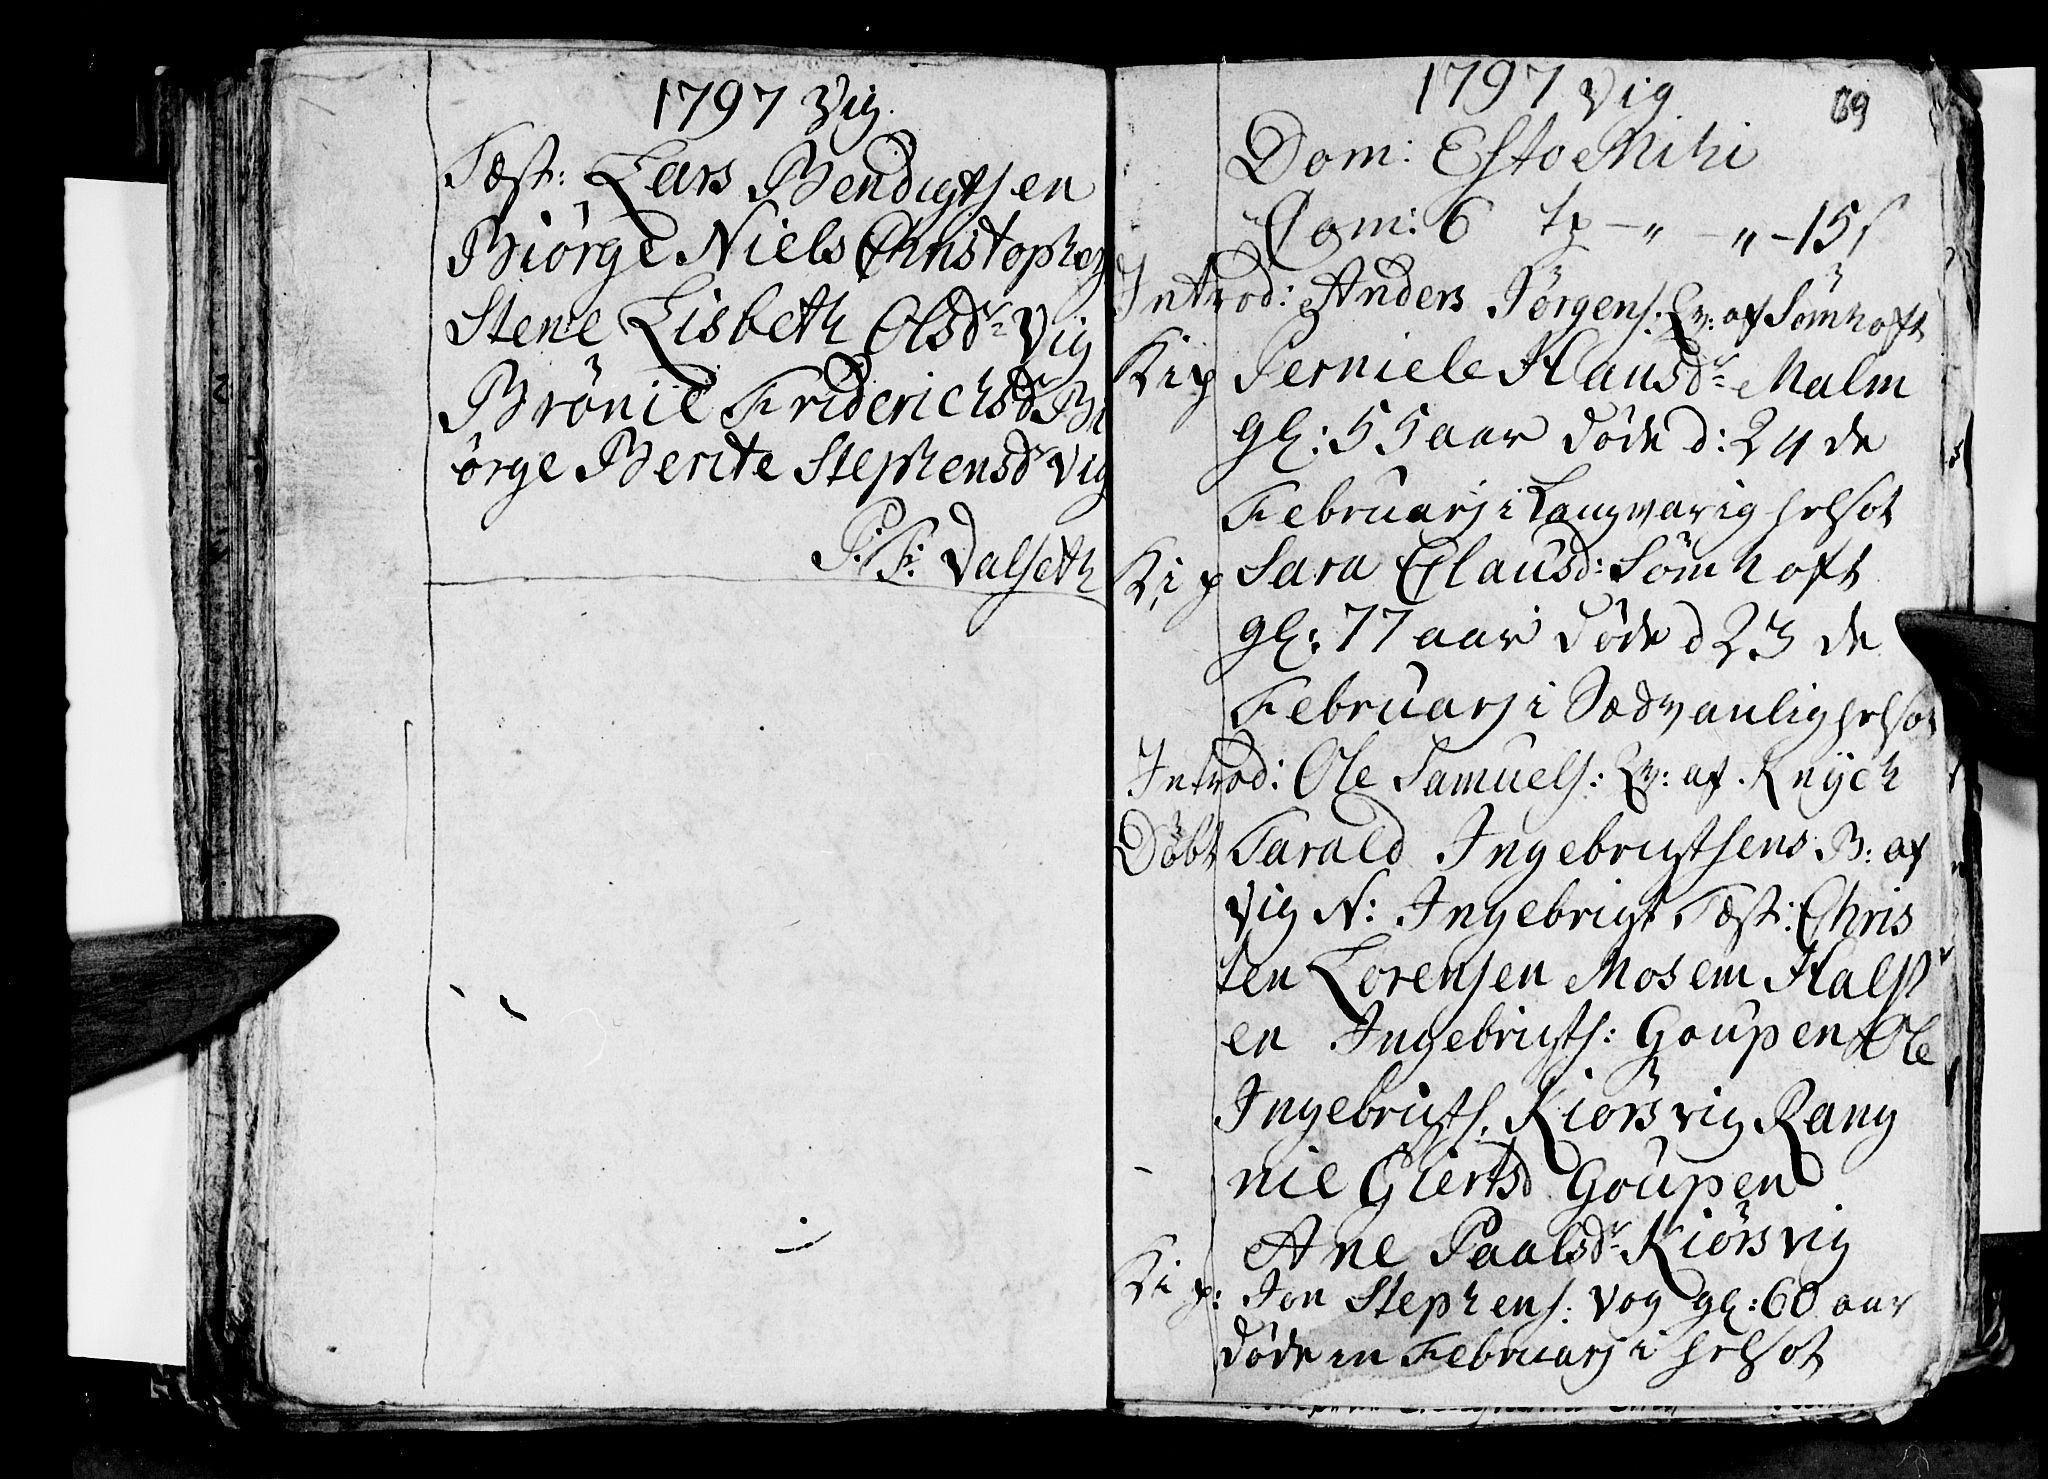 1797 Vig.
Tæst: Lars Bendigtsen
Biörge Niels Christophers
Stene Lisbeth Olsdr Vig
Brönie Friderichsdr Bi
örge Berite Stephensdr Vig
P: F: Dalseth
1797 Vig
69
Dom: Esto Mihi
Com: 6 tp - " - " - 15 s
Introd: Anders Jörgens. Qv: af Sömhoft
Kip Perniele Hansdr Malm
gl: 55 aar döde d: 24 de
Februarj i Langvarig helsot
Kip Sara Clausd: Sömhoft
gl: 77 aar döde d 23 de
Februarj i Sædvanlig helsot
Introd: Ole Samuels: Qv: af Knÿch
Döbt Tarald Ingebrigtsens B: af
Vig N: Ingebrigt Tæst: Chris
ten Lorensen Mosem Halst
en Ingebrigts: Goupen Ole
Ingebrigts. Kiörsvig Rang
nie Giertsd Goupen
Ane Paalsdr Kiörsvig
Kip: Jon Stephens. Vog gl: 60 aar
döde in Februarj i helsot